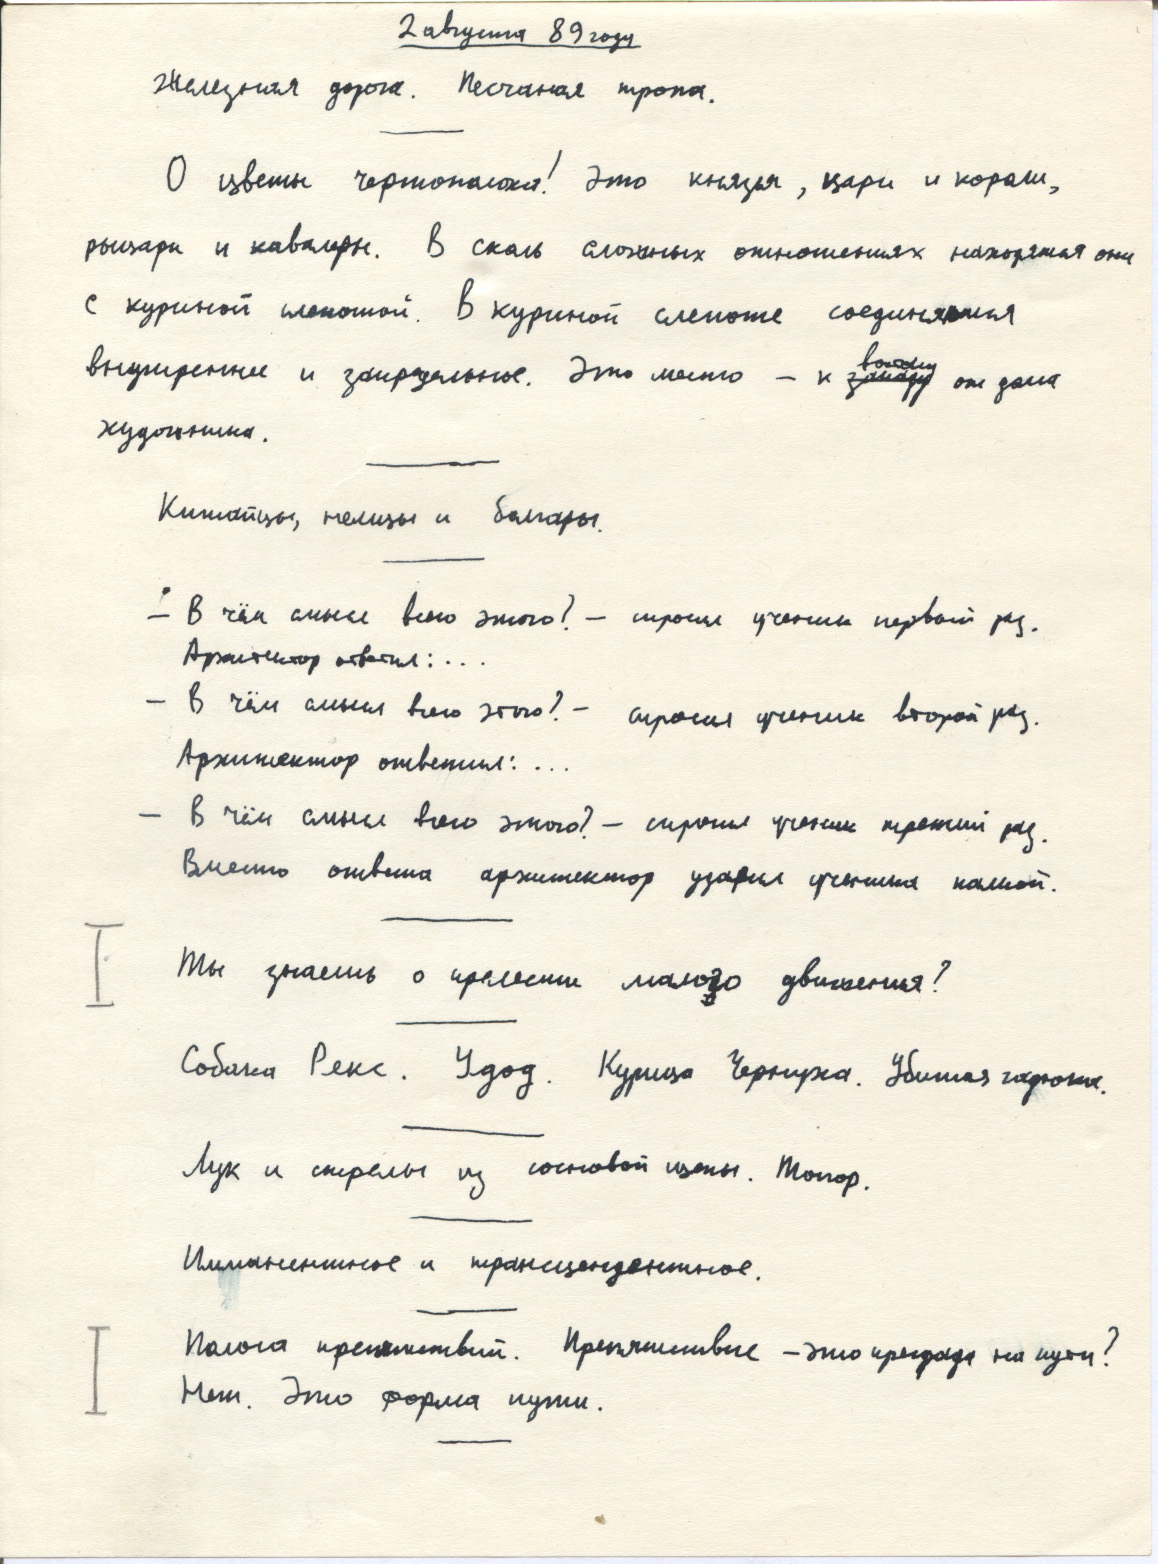 2 августа 89 году
Железная дорога. Песчаная тропа.
О цветы чертополоха! Это князья, цари и корали,
рыцари и кавалеры. В сколь сложных отношениях находятся они
с куриной слепотой. В куриной слепоте соединяются
внутреннее и запредельное. Это место – к востоку от дома
художника.
Китайцы, немцы и болгары.
– В чём смысл всего этого? – спросил ученик первый раз.
Архитектор ответил: ...
– В чём смысл всего этого? – спросил ученик второй раз.
Архитектор ответил: ...
– В чём смысл всего этого? – спросил ученик третий раз.
Вместо ответа архитектор ударил ученика палкой.
Ты знаешь о прелести малого движения?
Собака Рекс. Удод. Курица Чернуха. Убитая гадюка.
Лук и стрелы из сосновой щепы. Топор.
Имманентное и трансцендентное.
Полоса препятствий. Препятствие – это преграда на пути?
Нет. Это форма пути.